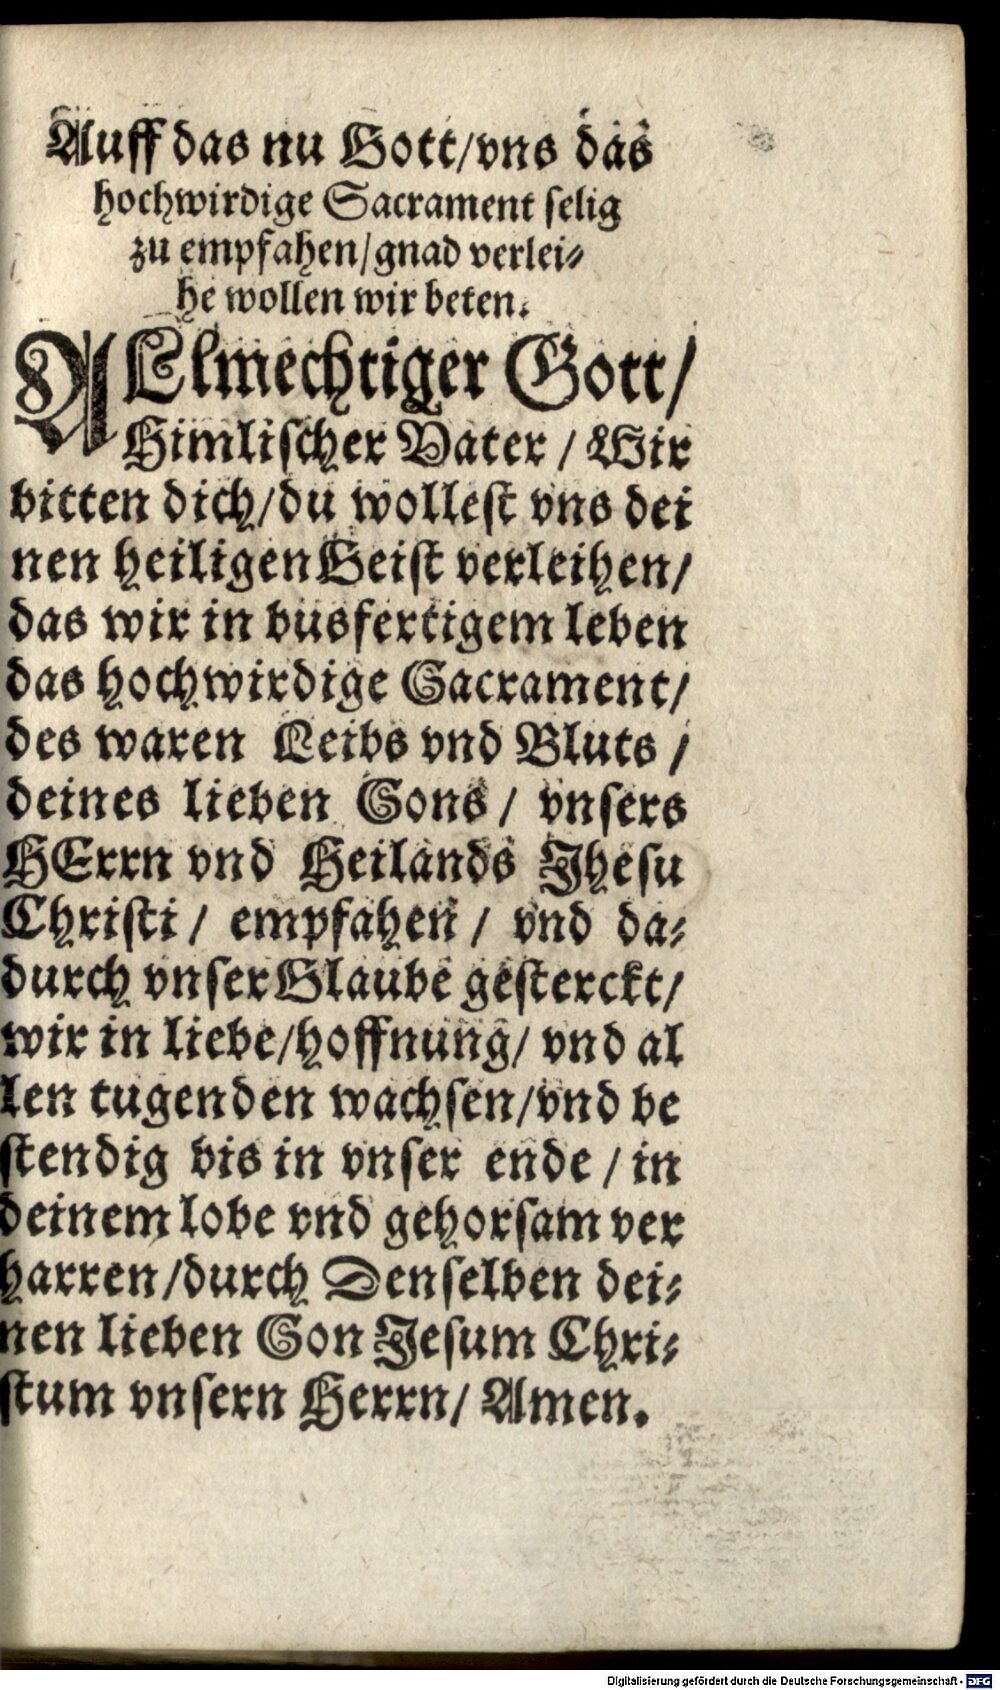 Auff das nu Gott/vns das
hochwirdige Sacrament selig
zu empfahen/gnad verlei-
he wollen wir beten.
ALlmechtiger Gott/
Himlischer Vater / Wir
bitten dich/du wollest vns dei
nen heiligen Geist verleihen/
das wir in busfertigem leben
das hochwirdige Sacrament/
des waren Leibs vnd Bluts /
deines lieben Sons / vnsers
HErrn vnd Heilands Jhesu
Christi / empfahen / vnd da-
durch vnser Glaube gesterckt/
wir in liebe/hoffnung/ vnd al
len tugenden wachsen/vnd be
stendig bis in vnser ende / in
deinem lobe vnd gehorsam ver
harren/durch Denselben dei-
nen lieben Son Jesum Chri-
stum vnsern Herrn/ Amen.
Digitalisierung gefördert durch die Deutsche Forschungsgemeinschaft - DFG